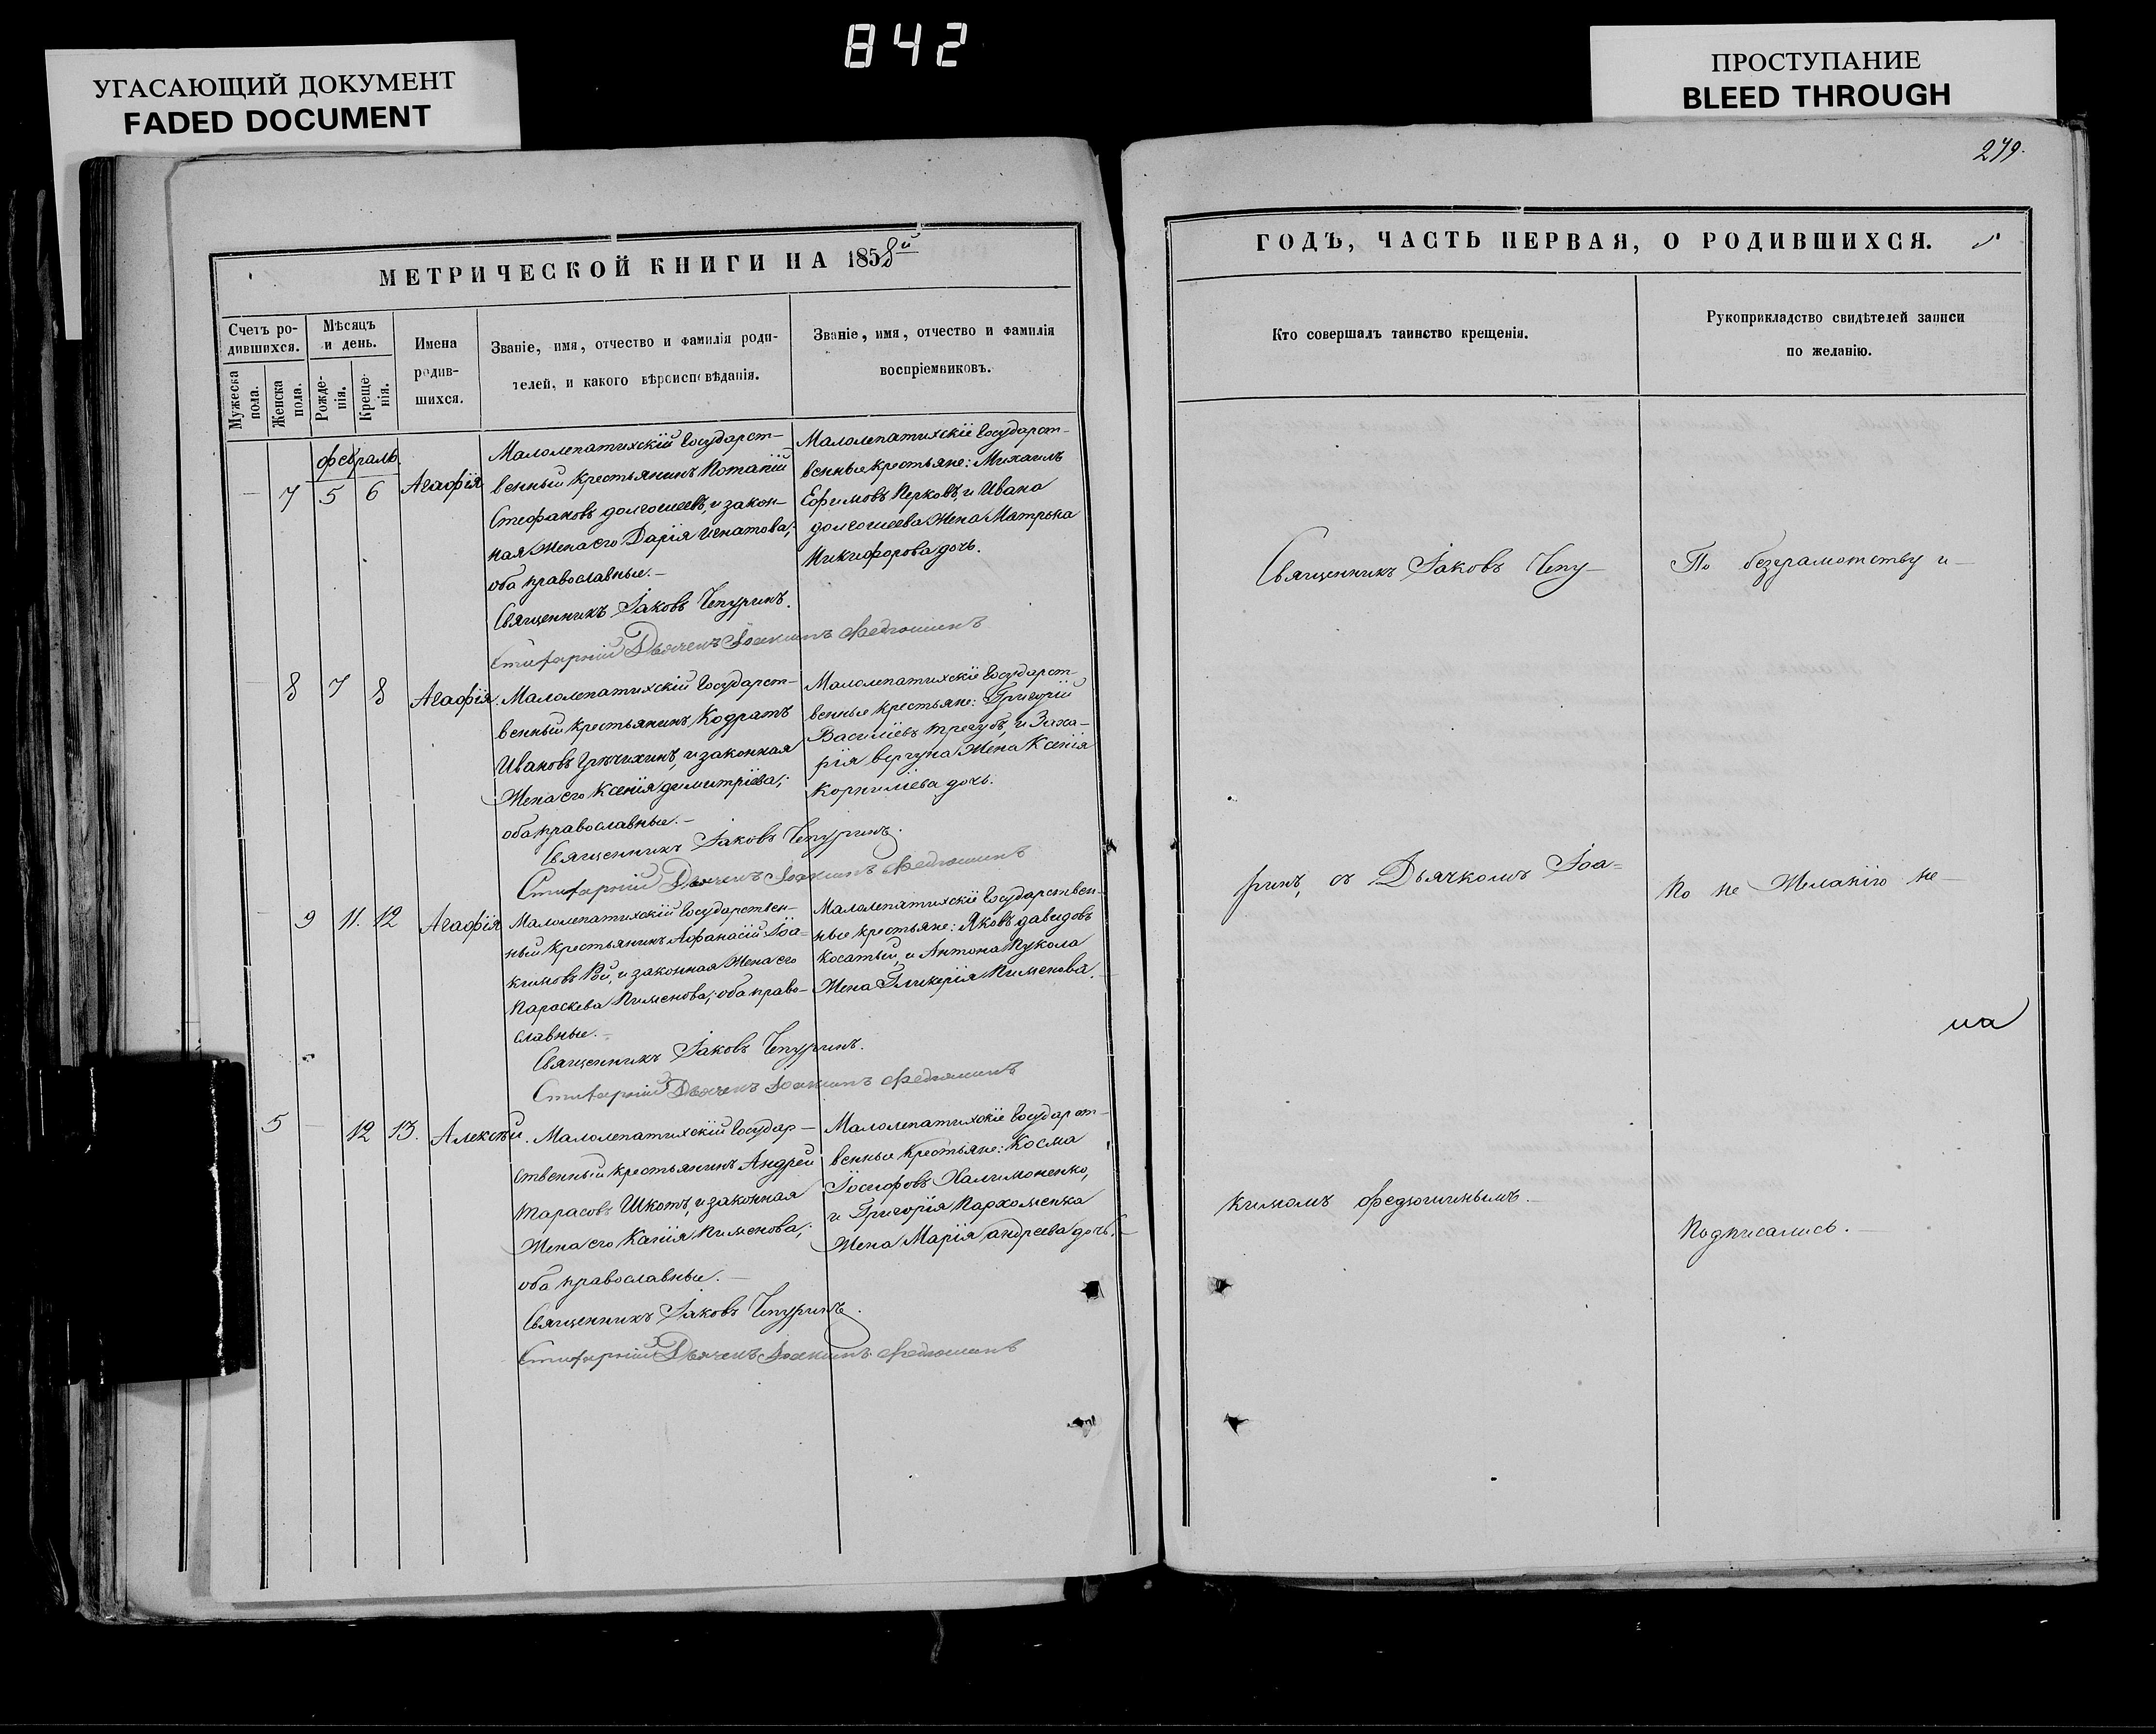 842
УГАСАЮЩИЙ ДОКУМЕНТ
FADED DOCUMENT
ПРОСТУПАНИЕ
BLEED THROUGH
279.
МЕТРИЧЕСКОЙ КНИГИ НА 1858й
Счетъ ро-
дившихся.
Мѣсяцъ
и день.
Имена
родив-
шихся.
Званіе, имя, отчество и фамилія роди-
телей, и какого вѣроисповѣданія.
Званіе, имя, отчество и фамилія
воспріемниковъ.
Мужеска
пола.
Женска
пола.
Рожде-
нія.
Креще-
нія.
февраль.
7 5 6 Агафія
Малолепатихскій Государст-
венный крестьянинъ Потапій
Стефановъ долгошеевъ, и закон-
ная Жена его Дарія игнатова;
оба православные.-
Священникъ Іаковъ Чепуринъ.
Стихарный Дьячекъ Іоакимъ Федюшинъ
Малолепатихскіе Государст-
венные крестьяне: Михаилъ
Ефимовъ Перковъ, и Ивана
долгошеева Жена Матрона
Никифорова дочь.
8 7 8 Агафія.
Малолепатихскій Государст-
венный крестьянинъ Кодратъ
Ивановъ и законная
Жена его Ксенія димитріева;
оба православные.-
Священникъ Іаковъ Чепуринъ.
Стихарный Дьячекъ Іоакимъ Федюшинъ
Малолепатихскіе Государст-
венные крестьяне: Григорій
Василіевъ трегубъ, и Заха-
рія вергуна Жена Ксенія
Корниліева дочь.
9 11. 12 Агафія
Малолепатихскій Государствен-
ный крестьянинъ Афанасій Іоа-
кимовъ Рой, и законная Жена его
Параскева Пименова; оба право-
славные.-
Священникъ Іаковъ Чепуринъ.
Стихарный Дьячекъ Іоакимъ Федюшинъ
Малолепатихскіе Государствен-
ные крестьяне: Яковъ давидовъ
Косатый, и Антона Кукола
Жена Гликерія Пименова.
5 - 12 13. Алексѣй.
Малолепатихскій Государ-
ственный крестьянинъ Андрей
Тарасовъ Шкотъ, и законная
Жена его Пименова;
оба православные.-
Священникъ Іаковъ Чепуринъ.
Стихарный Дьячекъ Іоакимъ Федюшинъ
Малолепатихскіе Государст-
венные крестьяне: Косма
Іосифовъ Халимоненко,
и Григорія Пархоменка
Жена Марія андреева дочь.-
ГОДЪ, ЧАСТЬ ПЕРВАЯ, О РОДИВШИХСЯ.
Кто совершалъ таинство крещенія.
Рукоприкладство свидѣтелей записи
по желанію.
Священникъ Іаковъ Чепу-
ринъ, съ Дьячкомъ Іоа=
кимомъ Федюшинымъ.-
По безграмотству и-
по не Желанію не-
подписались.-